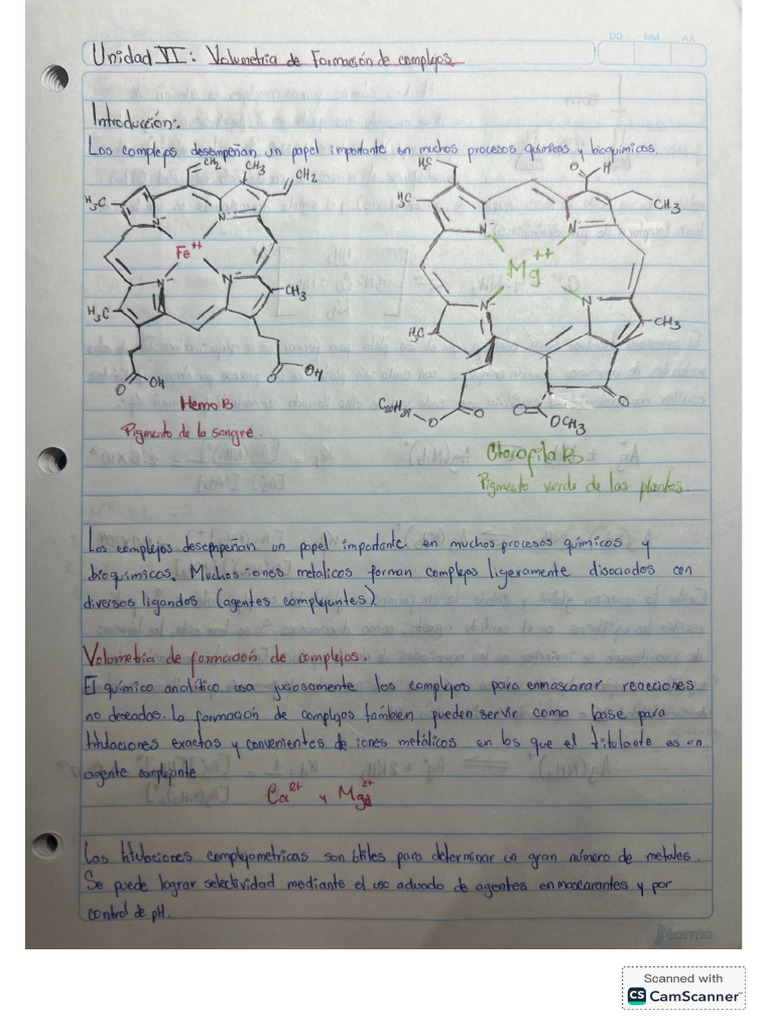 DD MM AA
Unidad VI: Volumetria de Formación de complejos.
Introducción:
Los complejos desempeñan un papel importante en muchos procesos químicos y bioquimicos.
CH2 CH3 CH2
H3C
Fe++
N- N N- N
CH3
H3C
O OH
O OH
Hemo B
Pigmento de la sangre.
H3C O H
H3C
CH3
N- N
Mg++
N- N
H3C
CH3
C20H39 O O
O OCH3
O
Clorofila B
Pigmento verde de las plantas.
Los complejos desempeñan un papel importante en muchos procesos químicos y
bioquimicos. Muchos iones metalicos forman complejos ligeramente disociados con
diversos ligandos (agentes complejantes).
Volumetria de formación de complejos.
El químico analítico usa juiciosamente los complejos para enmascarar reacciones
no deseadas. La formación de complejos tambien pueden servir como base para
titulaciones exactas y convenientes de iones metálicos en los que el titulante es un
agente complejante
Ca2+ y Mg2+
Las titulaciones complejometricas son útiles para determinar un gran número de metales.
Se puede lograr selectividad mediante el uso aduado de agentes enmascarantes y por
control de pH.
Norma
Scanned with
CS CamScanner